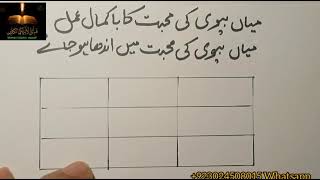 میاں بیوی کی محبت کا باکمال عمل
میاں بیوی کی محبت میں اندھا ہو جائے
+923024508015 Whatsapp